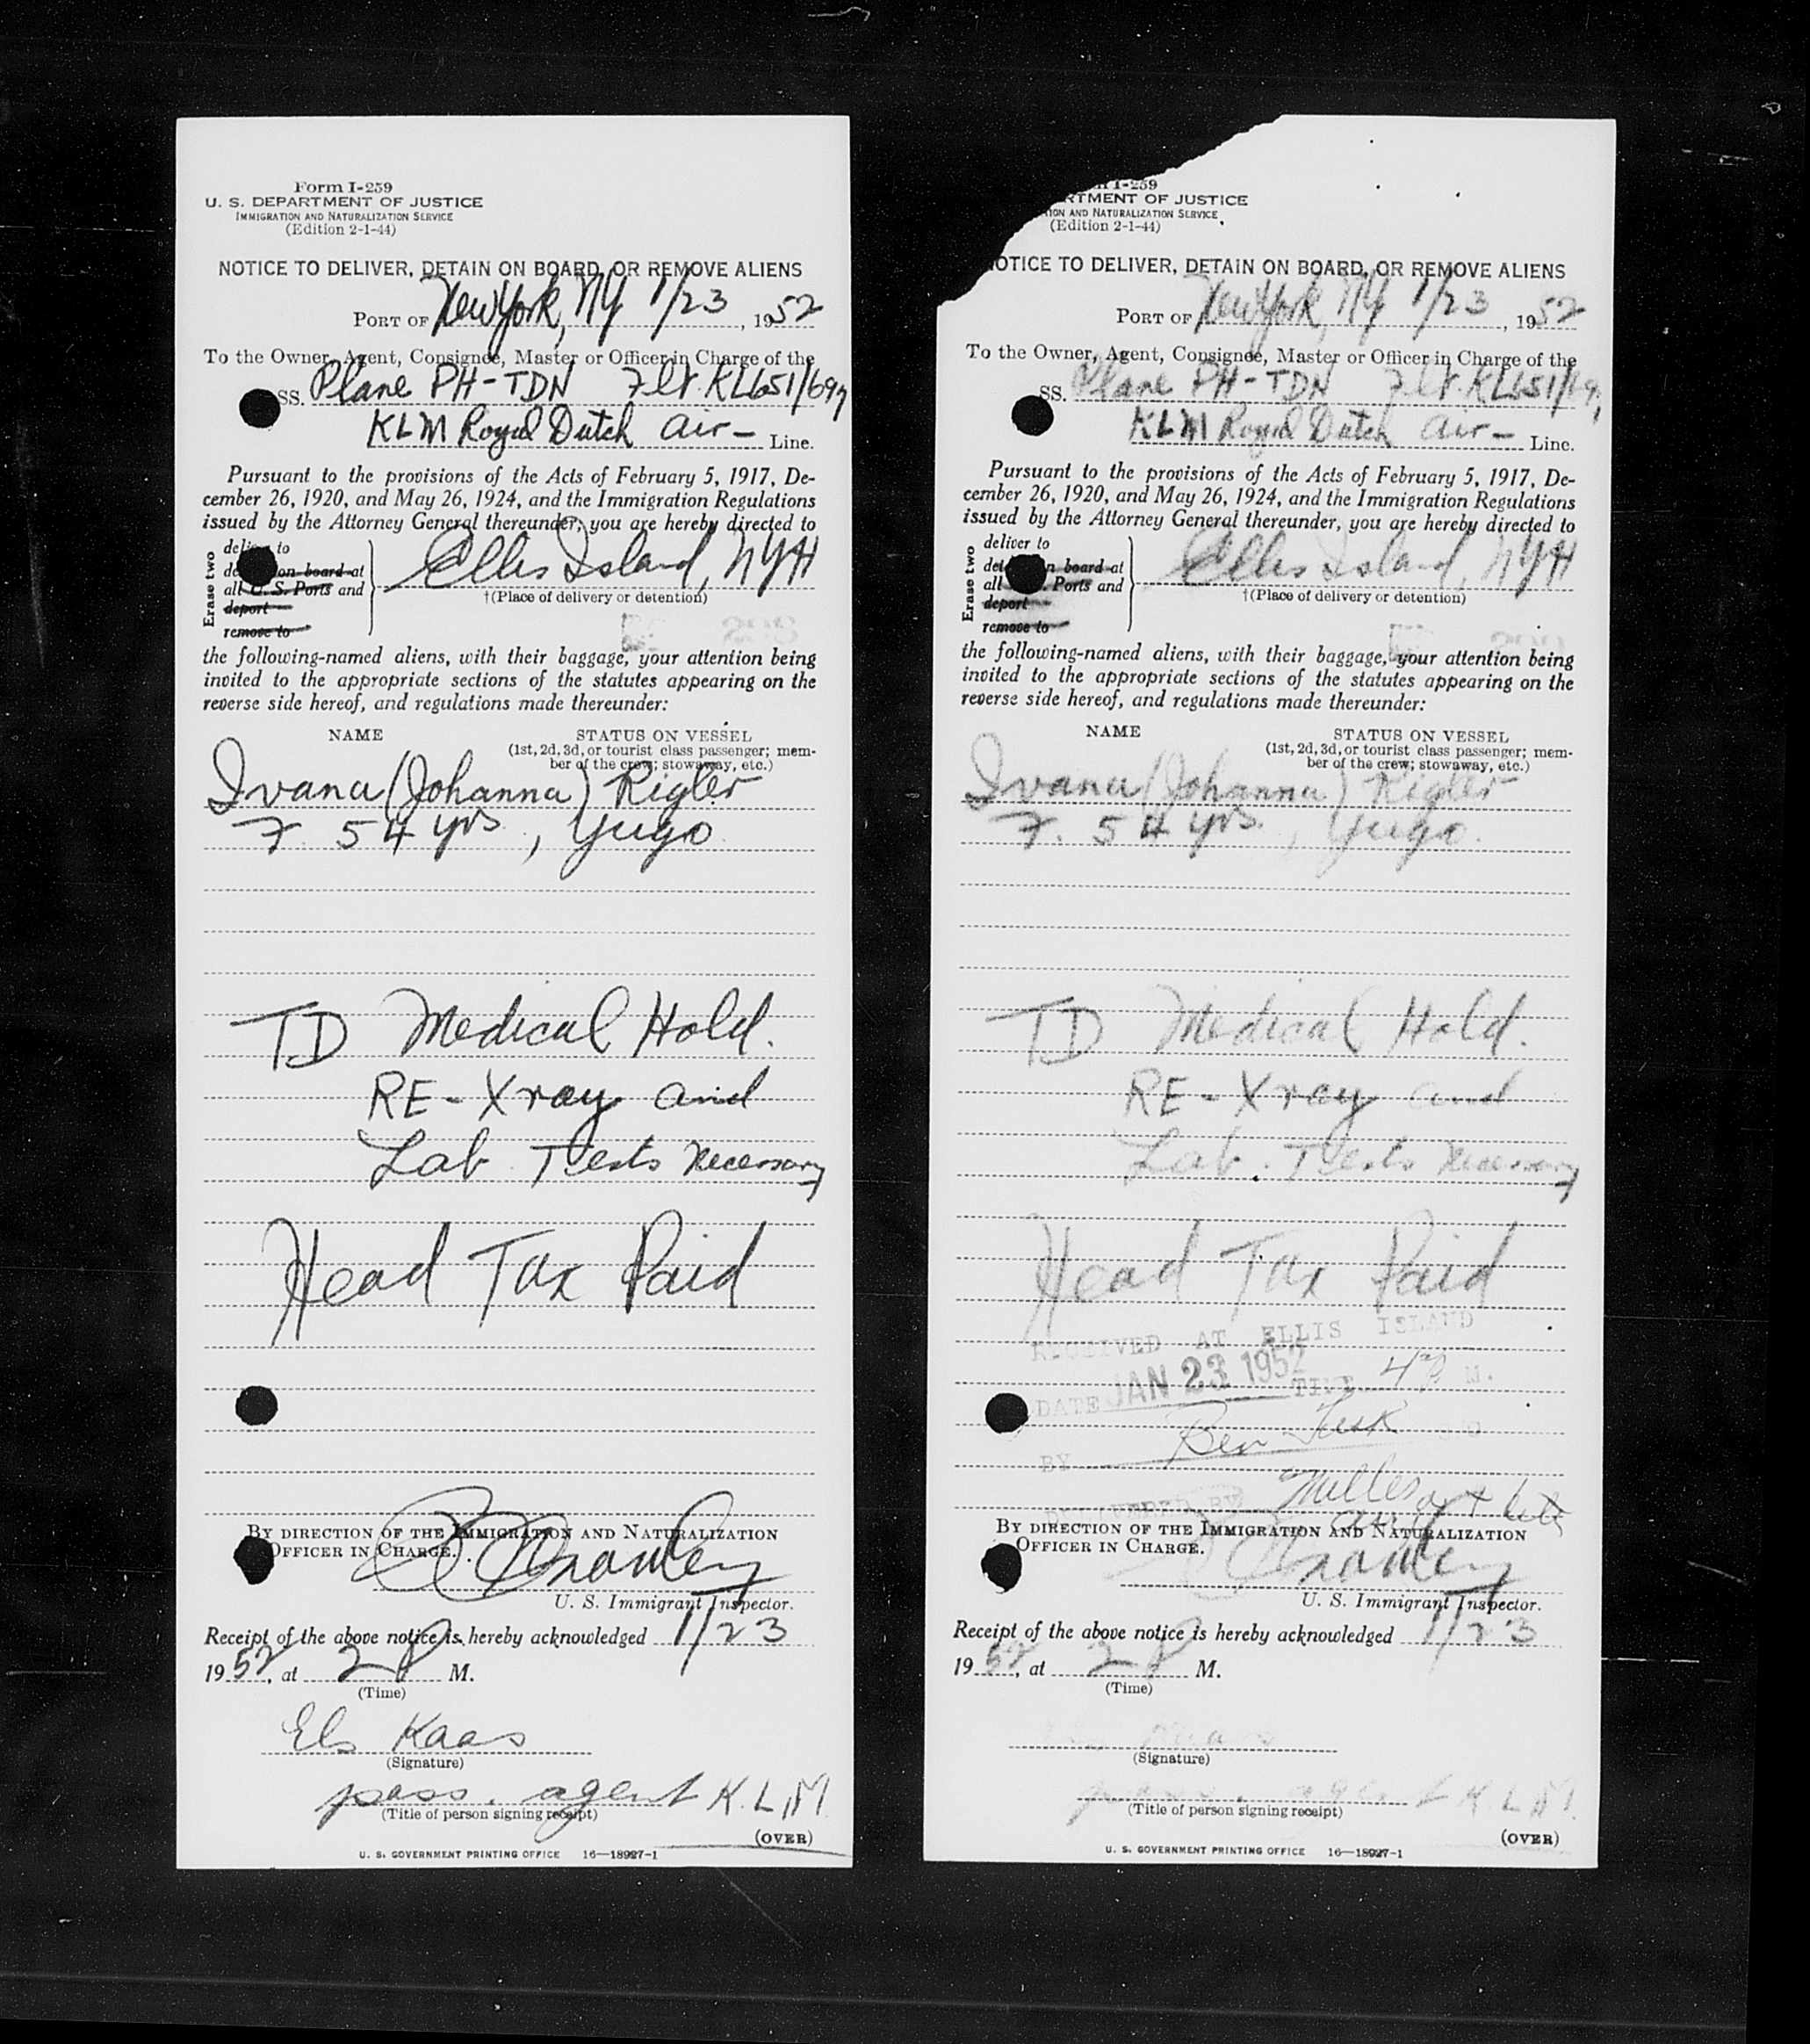 Form I-259
U. S. DEPARTMENT OF JUSTICE
IMMIGRATION AND NATURALIZATION SERVICE
(Edition 2-1-44)
NOTICE TO DELIVER, DETAIN ON BOARD, OR REMOVE ALIENS
PORT OF New York, NY 1/23, 1952
To the Owner, Agent, Consignee, Master or Officer in Charge of the
SS. Plane PH-TDN Flt. KL651/697
KLM Royal Dutch Air- Line.
Pursuant to the provisions of the Acts of February 5, 1917, De-
cember 26, 1920, and May 26, 1924, and the Immigration Regulations
issued by the Attorney General thereunder, you are hereby directed to
Erase two
deliver to
on board at
all U. S. Ports and
deport
remove to
Ellis Island, NYH
†(Place of delivery or detention)
the following-named aliens, with their baggage, your attention being
invited to the appropriate sections of the statutes appearing on the
reverse side hereof, and regulations made thereunder:
NAME STATUS ON VESSEL
(1st, 2d, 3d, or tourist class passenger; mem-
ber of the crew; stowaway, etc.)
Ivana (Johanna) Rigler
F. 54 yrs., Yugo.
TD Medical Hold.
RE-Xray and
Lab. Tests Necessary
Head Tax Paid
BY DIRECTION OF THE IMMIGRATION AND NATURALIZATION
OFFICER IN CHARGE.
U. S. Immigrant Inspector.
Receipt of the above notice is hereby acknowledged 1/23
1952, at 2 P M.
(Time)
Els Kaas
(Signature)
pass. agent K.L.M.
(Title of person signing receipt)
(OVER)
U. S. GOVERNMENT PRINTING OFFICE 16—18927-1
I-259
RTMENT OF JUSTICE
ION AND NATURALIZATION SERVICE
(Edition 2-1-44)
OTICE TO DELIVER, DETAIN ON BOARD, OR REMOVE ALIENS
PORT OF New York, NY 1/23, 1952
To the Owner, Agent, Consignee, Master or Officer in Charge of the
SS. Plane PH-TDN Flt. KL651/69
KLM Royal Dutch Air- Line.
Pursuant to the provisions of the Acts of February 5, 1917, De-
cember 26, 1920, and May 26, 1924, and the Immigration Regulations
issued by the Attorney General thereunder, you are hereby directed to
Erase two
deliver to
n board at
all Ports and
deport
remove to
Ellis Island, NYH
†(Place of delivery or detention)
the following-named aliens, with their baggage, your attention being
invited to the appropriate sections of the statutes appearing on the
reverse side hereof, and regulations made thereunder:
NAME STATUS ON VESSEL
(1st, 2d, 3d, or tourist class passenger; mem-
ber of the crew; stowaway, etc.)
Ivana (Johanna) Rigler
F. 54 yrs., Yugo.
TD Medical Hold.
RE-Xray and
Lab. Tests Necessary
Head Tax Paid
RECEIVED AT ELLIS ISLAND
DATE JAN 23 1952 TIME M.
BY Ben
BY DIRECTION OF THE IMMIGRATION AND NATURALIZATION
OFFICER IN CHARGE.
U. S. Immigrant Inspector.
Receipt of the above notice is hereby acknowledged 1/23
1952, at 2 P M.
(Time)
(Signature)
pass. agent K.L.M.
(Title of person signing receipt)
(OVER)
U. S. GOVERNMENT PRINTING OFFICE 16—18927-1